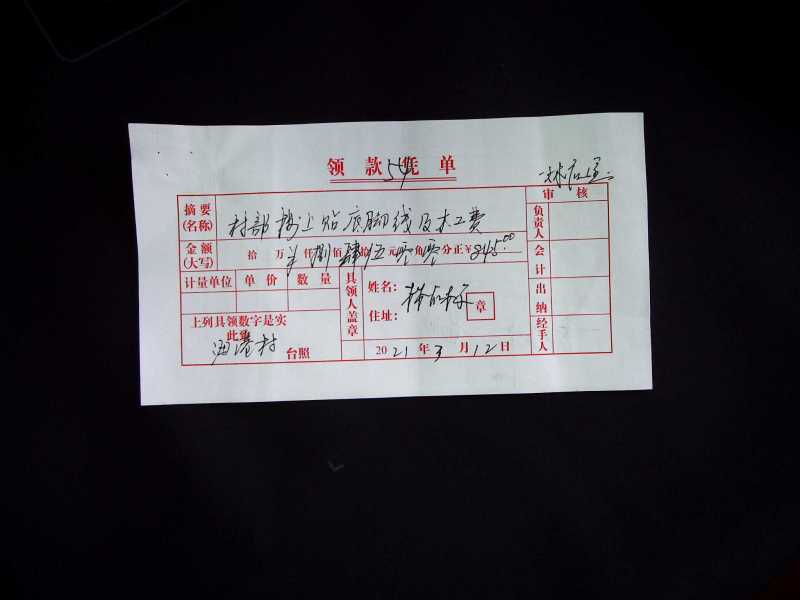 领款凭单
54
审核
摘要(名称) 村部楼上贴底脚线及木工费
负责人
金额(大写) 拾万 仟捌佰肆拾伍元零角零分正¥845.00
会计
计量单位 单价 数量
具领人盖章
姓名:
章
住址:
出纳
上列具领数字是实
此致
村 台照
2021年3月12日
经手人